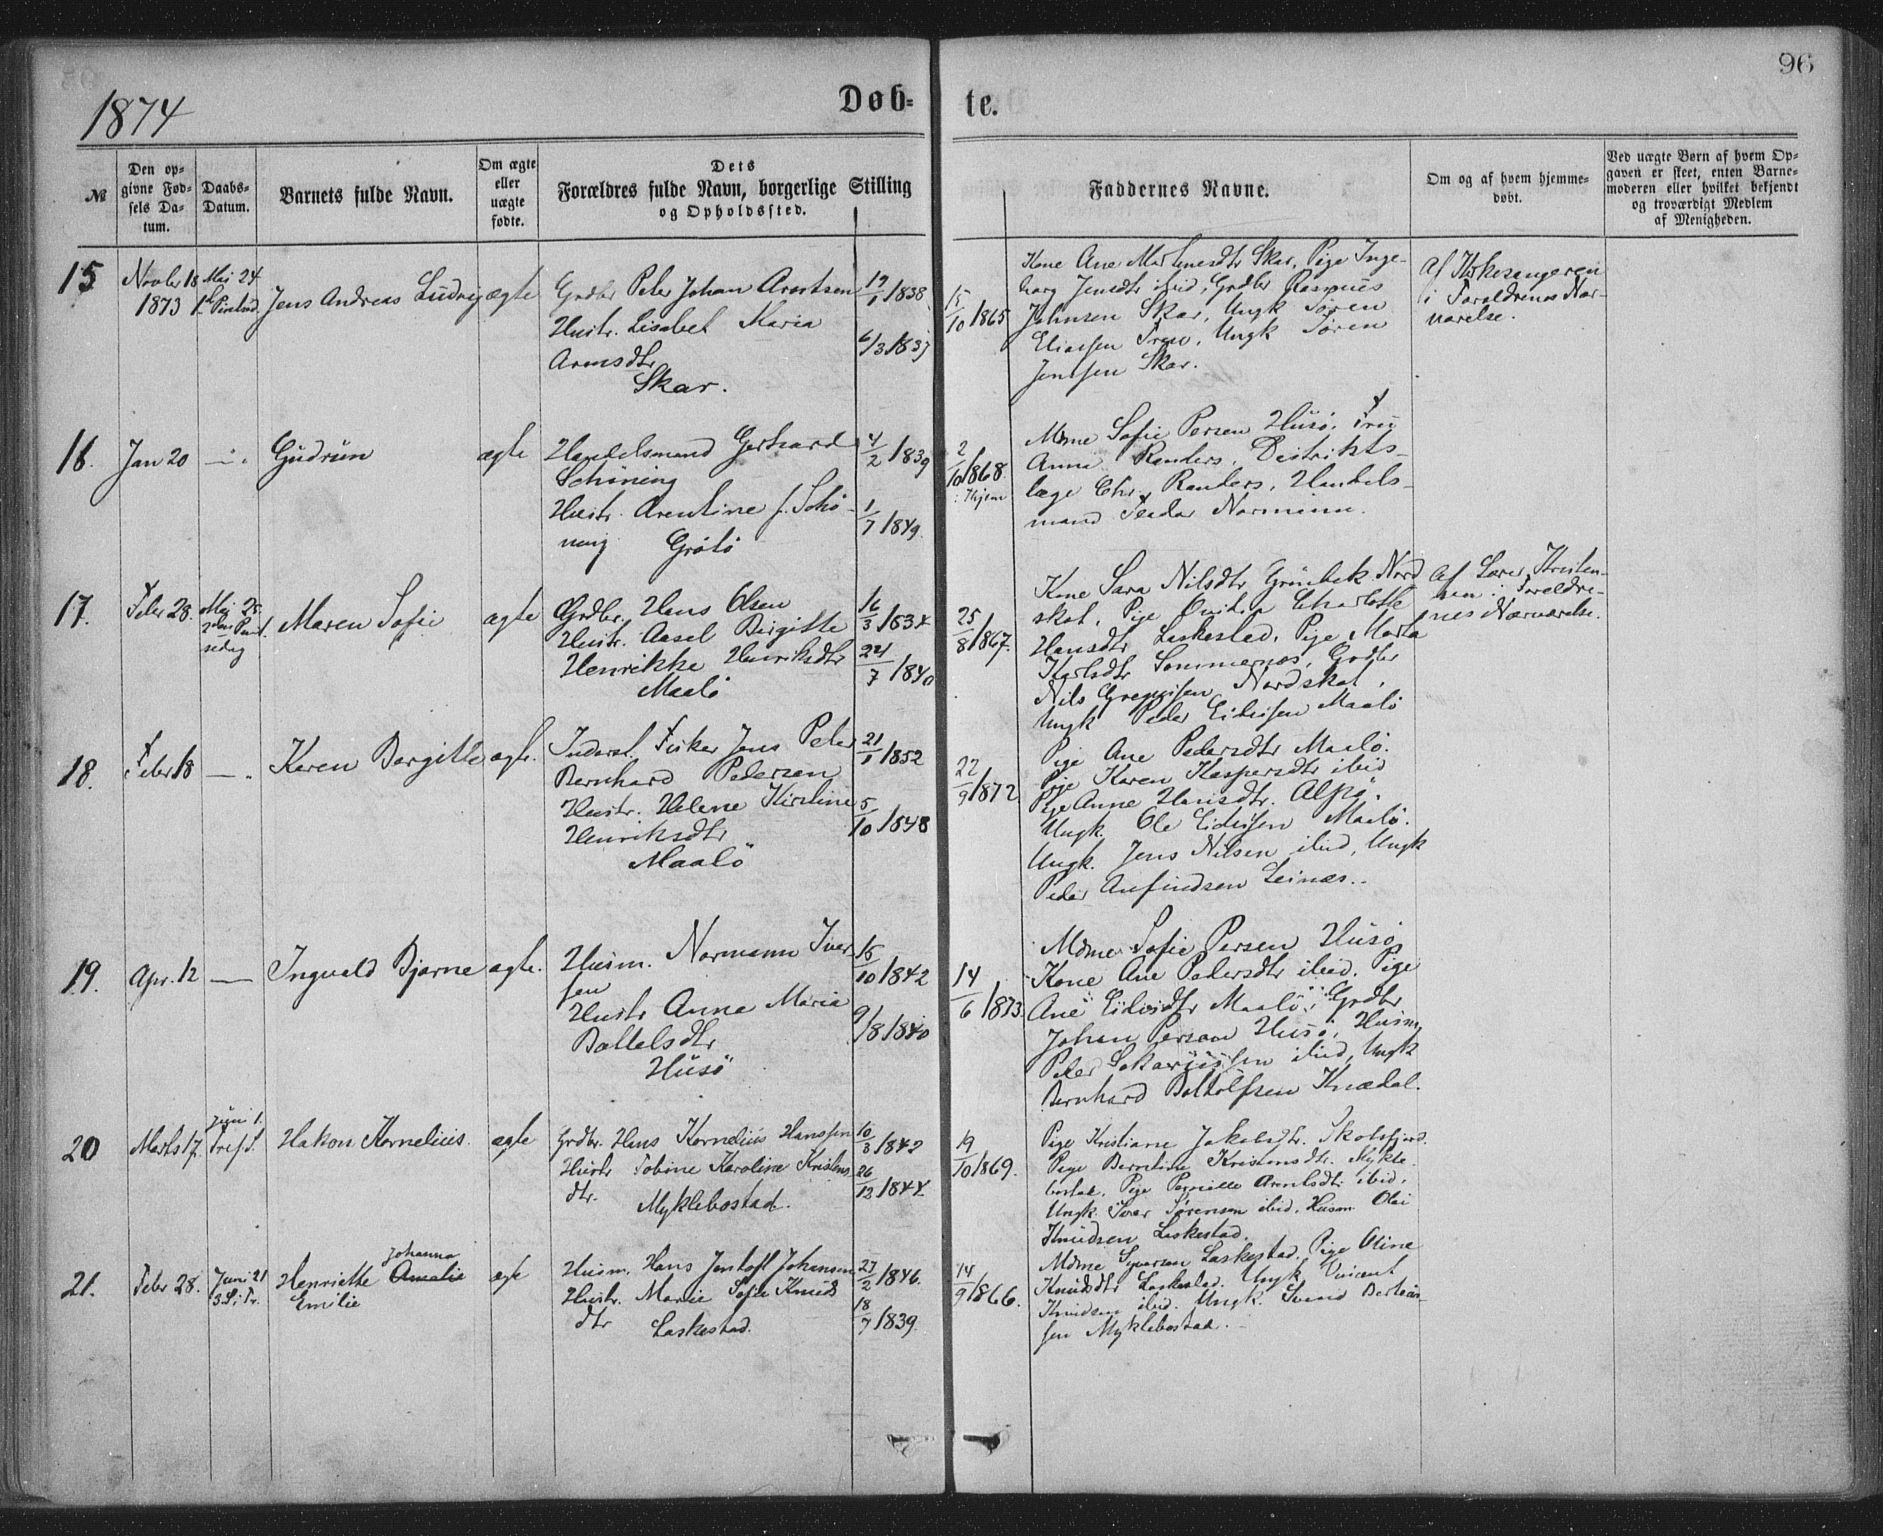 96
1874
Døb-
te.
№
Den op-
givne Fød-
sels Da-
tum.
Daabs-
Datum.
Barnets fulde Navn.
Om ægte
eller
uægte
fødte.
Dets
Forældres fulde Navn, borgerlige Stilling
og Opholdssted.
Faddernes Navne.
Om og af hvem hjemme-
døbt.
Ved uægte Børn af hvem Op-
gaven er skeet, enten Barne-
moderen eller hvilket bekjendt
og troværdigt Medlem
af Menigheden.
15
Novbr 18
1873
Mai 24
Jens Andreas Ludvig
ægte
Grdbr Peter Johan Arntsen
Hustr. Lisabet Maria
Skar.
19/1 1838
6/3 1837
15/10 1865
Kone Ane Skar, Pige Inge-
borg Jensdtr ibid, Grdbr Rasmus
Johnsen Skar, Ungk Søren
Eliassen, Ungk Søren
Jentsen Skar.
Af Kirkesangeren
i Forældrenes Nær-
værelse.
16.
Jan 20
Gudrun
ægte
Handelsmand Gerhard
Schöning
Hustr. Arentine f. Schö-
ning Grötö
4/2 1839
1/7 1849
2/10 1868
i Hjem
Mdme Sofie Persen Husö, Fru
Anna Randers, Distrikts-
læge Chr. Randers, Handels-
mand Normann.
17.
Febr 28.
Mai 25
Maren Sofie
ægte
Grdbr. Hans Olsen
Hustr. Aasel Birgitte
Henrikke Henriksdtr
Maalö
16/3 1834
24/7 1840
25/8 1867.
Kone Sara Nilsdtr Grönbek Nord
skot, Pige Charlotte
Hansdtr Laskestad, Pige Marta
Karlsdtr Sommernes, Grdbr
Nils Nordskot,
Ungk Peder Maalö
Af Lærer Kristen-
sen i Forældre-
nes Nærværelse.
18.
Febr 18
Karen Bergitte
ægte.
Inderst, Fisker Jens Peter
Bernhard Pedersen
Hustr. Helene Kirstine
Henriksdtr
Maalö
21/1 1852
5/10 1848
22/9 1872
Pige Ane Pedersdtr Maalö.
Pige Karen Kaspersdtr ibid
Pige Anne Hansdtr. Alpö.
Ungk. Ole Maalö.
Ungk. Jens Nilsen ibid, Ungk
Peder Anfindsen Leines.
19.
Apr. 12
Ingvald Bjarne
ægte.
Husm. Normann Iver
sen
Hustr Anna Maria
Bottelsdtr
Husö
15/10 1842
9/8 1840
14/6 1873.
Mdme Sofie Persen Husö
Kone Ane Pedersdtr ibid, Pige
Ane Maalö, Grdbr
Johan Persen Husö, Husm
Peter ibid, Ungk
Bernhard Bottolfsen Knædal.
20
Marts 17.
Juni 1.
Tref. S.
Hakon Kornelius.
ægte
Grdbr. Hans Kornelius Hanssen
Hustr Tobine Karoline Kristens
dtr. Myklebostad.
10/3 1842
26/12 1844
19/10 1869.
Pige Kristiane Jakobsdtr. Skotsfjord.
Pige Berntine Kristensdtr. Mykle-
bostad. Pige Pernille Arentsdtr ibid,
Ungk. Iver Sörensen ibid, Husm Olai
Knudsen Laskestad.
21.
Febr 28.
Juni 21
3. S. Tr.
Johanna
Henriette Amalie
Emilie
ægte
Husm. Hans Jentoft Johansen
Hustr. Marie Sofie Knuds
dtr Laskestad.
27/2 1846.
18/7 1839.
14/9 1866.
Mdme Laskestad. Pige Oline
Knudsdtr Laskestad. Ungk Vincent
Knudsen ibid. Ungk. Svend Berteus-
sen Myklebostad.